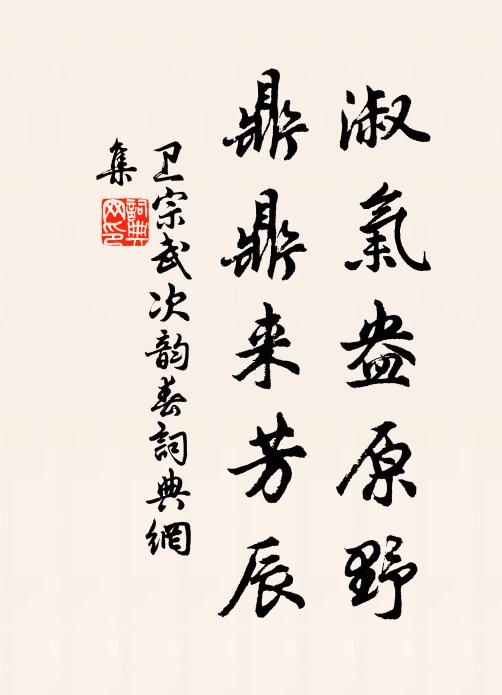 淑氣盎原野
鼎鼎来芳辰
卫宗武次韵春詞典網
集
詞典
网印